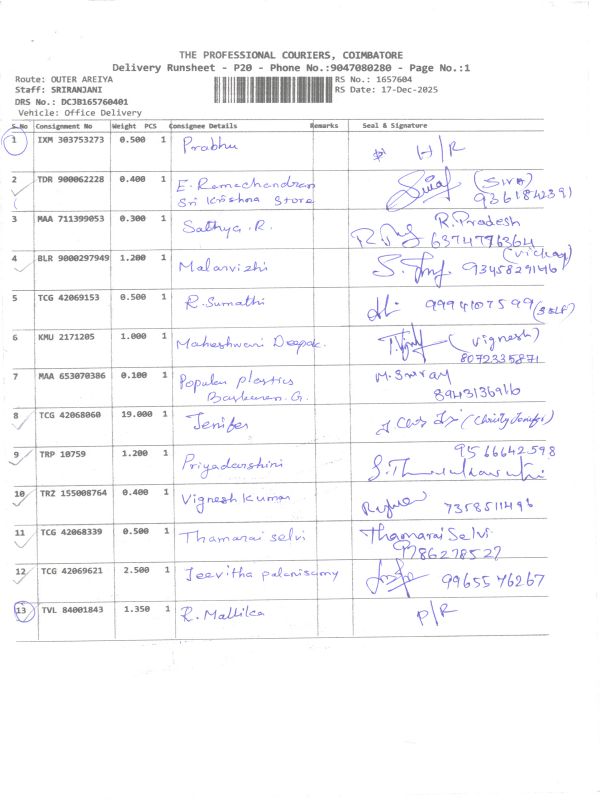 THE PROFESSIONAL COURIERS, COIMBATORE
Delivery Runsheet - P20 - Phone No.:9047080280 - Page No.:1
Route: OUTER AREIYA RS No.: 1657604
Staff: SRIRANJANI RS Date: 17-Dec-2025
DRS No.: DCJB165760401
Vehicle: Office Delivery
S.No Consignment No Weight PCS Consignee Details Remarks Seal & Signature
1 IXM 303753273 0.500 1 Prabhu H/R
2 TDR 900062228 0.400 1 E. Ramachandran (SIVA)
Sri Krishna Store 9361842391
3 MAA 711399053 0.300 1 Sathya. R. R. Pradesh
6374776364
4 BLR 9000297949 1.200 1 Malarvizhi 9345829146
5 TCG 42069153 0.500 1 R. Sumathi 9994107599 (SELF)
6 KMU 2171205 1.000 1 Maheshwari Deepak. (Vignesh)
8072335871
7 MAA 653070386 0.100 1 Popular plastics
Baskaran. G. 8943136916
8 TCG 42068060 19.000 1 Jenifer (Christy Jenifer)
9 TRP 10759 1.200 1 Priyadarshini 9566642598
10 TRZ 155008764 0.400 1 Vignesh Kumar 7358511496
11 TCG 42068339 0.500 1 Thamarai selvi Thamarai Selvi.
9786278527
12 TCG 42069621 2.500 1 Jeevitha palanisamy 9965576267
13 TVL 84001843 1.350 1 R. Mallika P/R